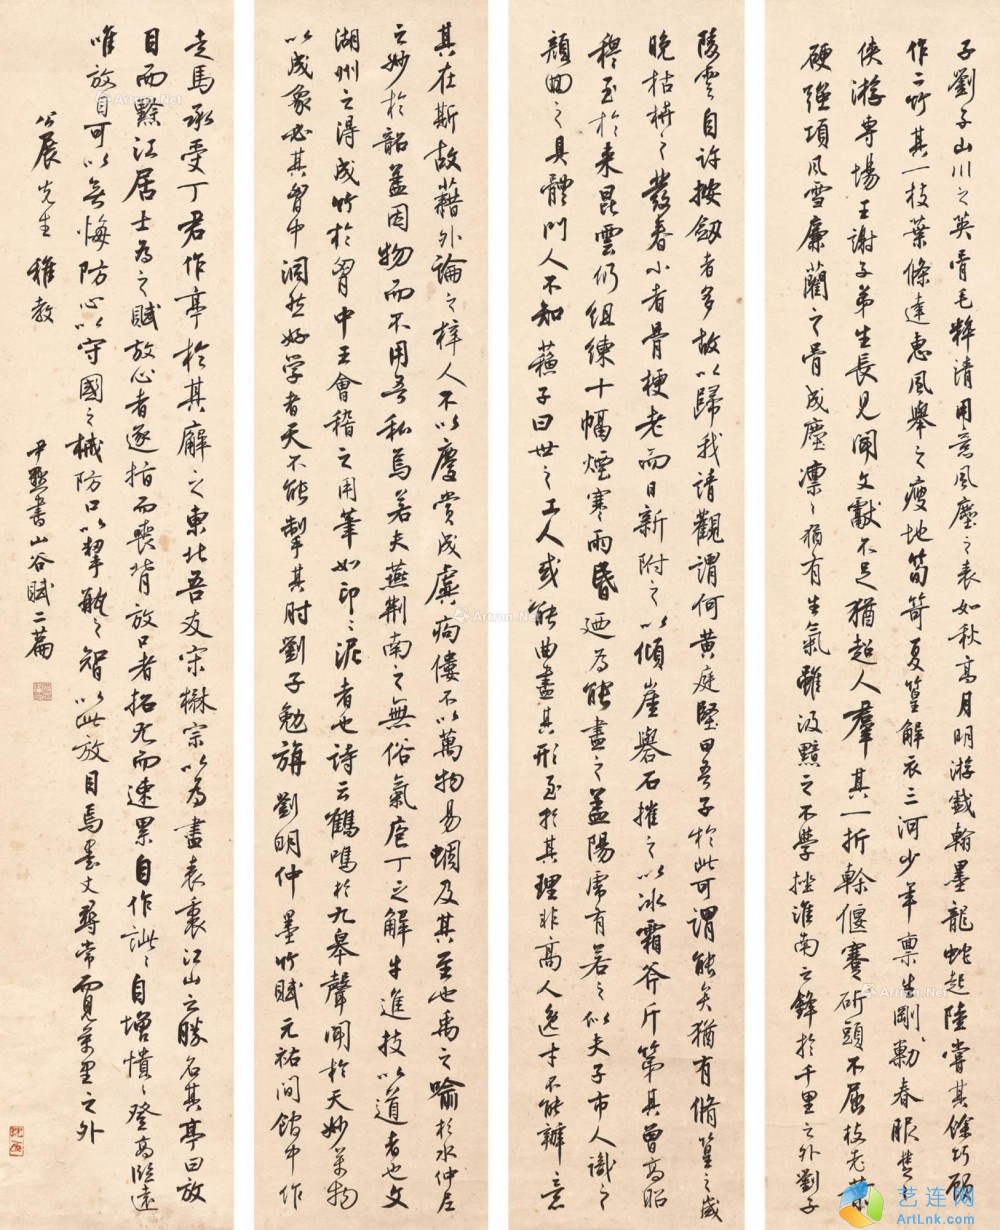 子劉子山川之英骨毛粹清用意風塵之表如秋高月明游戲翰墨龍蛇起陸嘗其餘巧顧
作二竹其一枝葉條達惠風舉之瘦地筍笴夏篁解衣三河少年稟生剛勁春服楚々
俠游專場王謝子弟生長見聞文獻不足猶超人羣其一折榦偃蹇斫頭不屈枝老葉
硬強項風雪廉藺之骨成塵凛々猶有生氣雖汲黯之不學挫淮南之鋒於千里之外劉子
陵雲自許按劔者多故以歸我請觀謂何黃庭堅曰吾子於此可謂能矣猶有脩篁之歲
晚枯枿之發春小者骨梗老而日新附之以傾崖礜石摧之以冰霜斧斤第其曾高昭
穆至於來昆雲仍組練十幅煙寒雨昏迺為能盡之蓋陽虎有若之似夫子市人識之
顏回之具體門人不知蘇子曰世之工人或能曲盡其形至於其理非高人逸才不能辦意
其在斯故藉外論之梓人不以慶賞成虡痀僂不以萬物易蜩及其至也禹之喻於水仲尼
之妙於韶蓋因物而不用吾私焉若夫燕荆南之無俗氣庖丁之解牛進技以道者也文
湖州之得成竹於胷中王會稽之用筆如印々泥者也詩云鶴鳴於九皋聲聞於天妙萬物
以成象必其胷中洞然好學者天不能掣其肘劉子勉旃劉明仲墨竹賦元祐間館中作
走馬承受丁君作亭於其廨之東北吾友宋楙宗以為盡表裏江山之勝名其亭曰放
目而黔江居士為之賦放心者逐指而喪背放口者招尤而速累自作訿々自增憒々登高臨遠
唯放目可以無悔防心以守國之械防口以挈瓶之智以此放目焉丈尋常而見萬里之外
公展先生雅教
尹默書山谷賦二篇
Artron.Net
Artron.Net
Artron.Net
Artron.Net
艺连网
ArtLnk.com